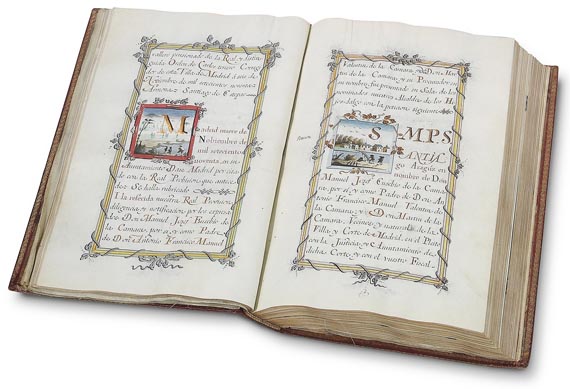 cavallero pensionado de la Real y distin
guida Orden de Carlos tercero Corregi
dor de esta Villa de Madrid à seis de
Noviembre de mil setecientos noventa
Armona Santiago de Estepar
M
adrid nueve de
Noviembre de
mil setecientos
noventa, en su
Ayuntamiento Dese Madrid por cita
con la Real Provision que antece
de Se havia rubricado
I la referida nuestra Real Provision
diligencia y notificacion, por los expresa
dos Don Manuel Jose Eusebio de
la Camara, por si y como Padre
de Don Antonio Francisco Manuel
Valentin de la Camara, y Don Mar
tin de la Camara, y su Procurador en
su nombre, fue presentado en Sala de los
nominados nuestros Alcaldes de los Hi
jos dalgo con la peticion siguiente
S M P S
ANTIA
go Aragon en
nombre de Don
Manuel Jose Eusebio de la Cama
ra, por si y como Padre de Don An
tonio Francisco Manuel Valentin de
la Camara, y Don Martin de la
Camara, Vecinos y naturales de la
Villa y Corte de Madrid, en el Pleito
con la Justicia y Ayuntamiento de
dicha Corte, y con el vuestro Fiscal